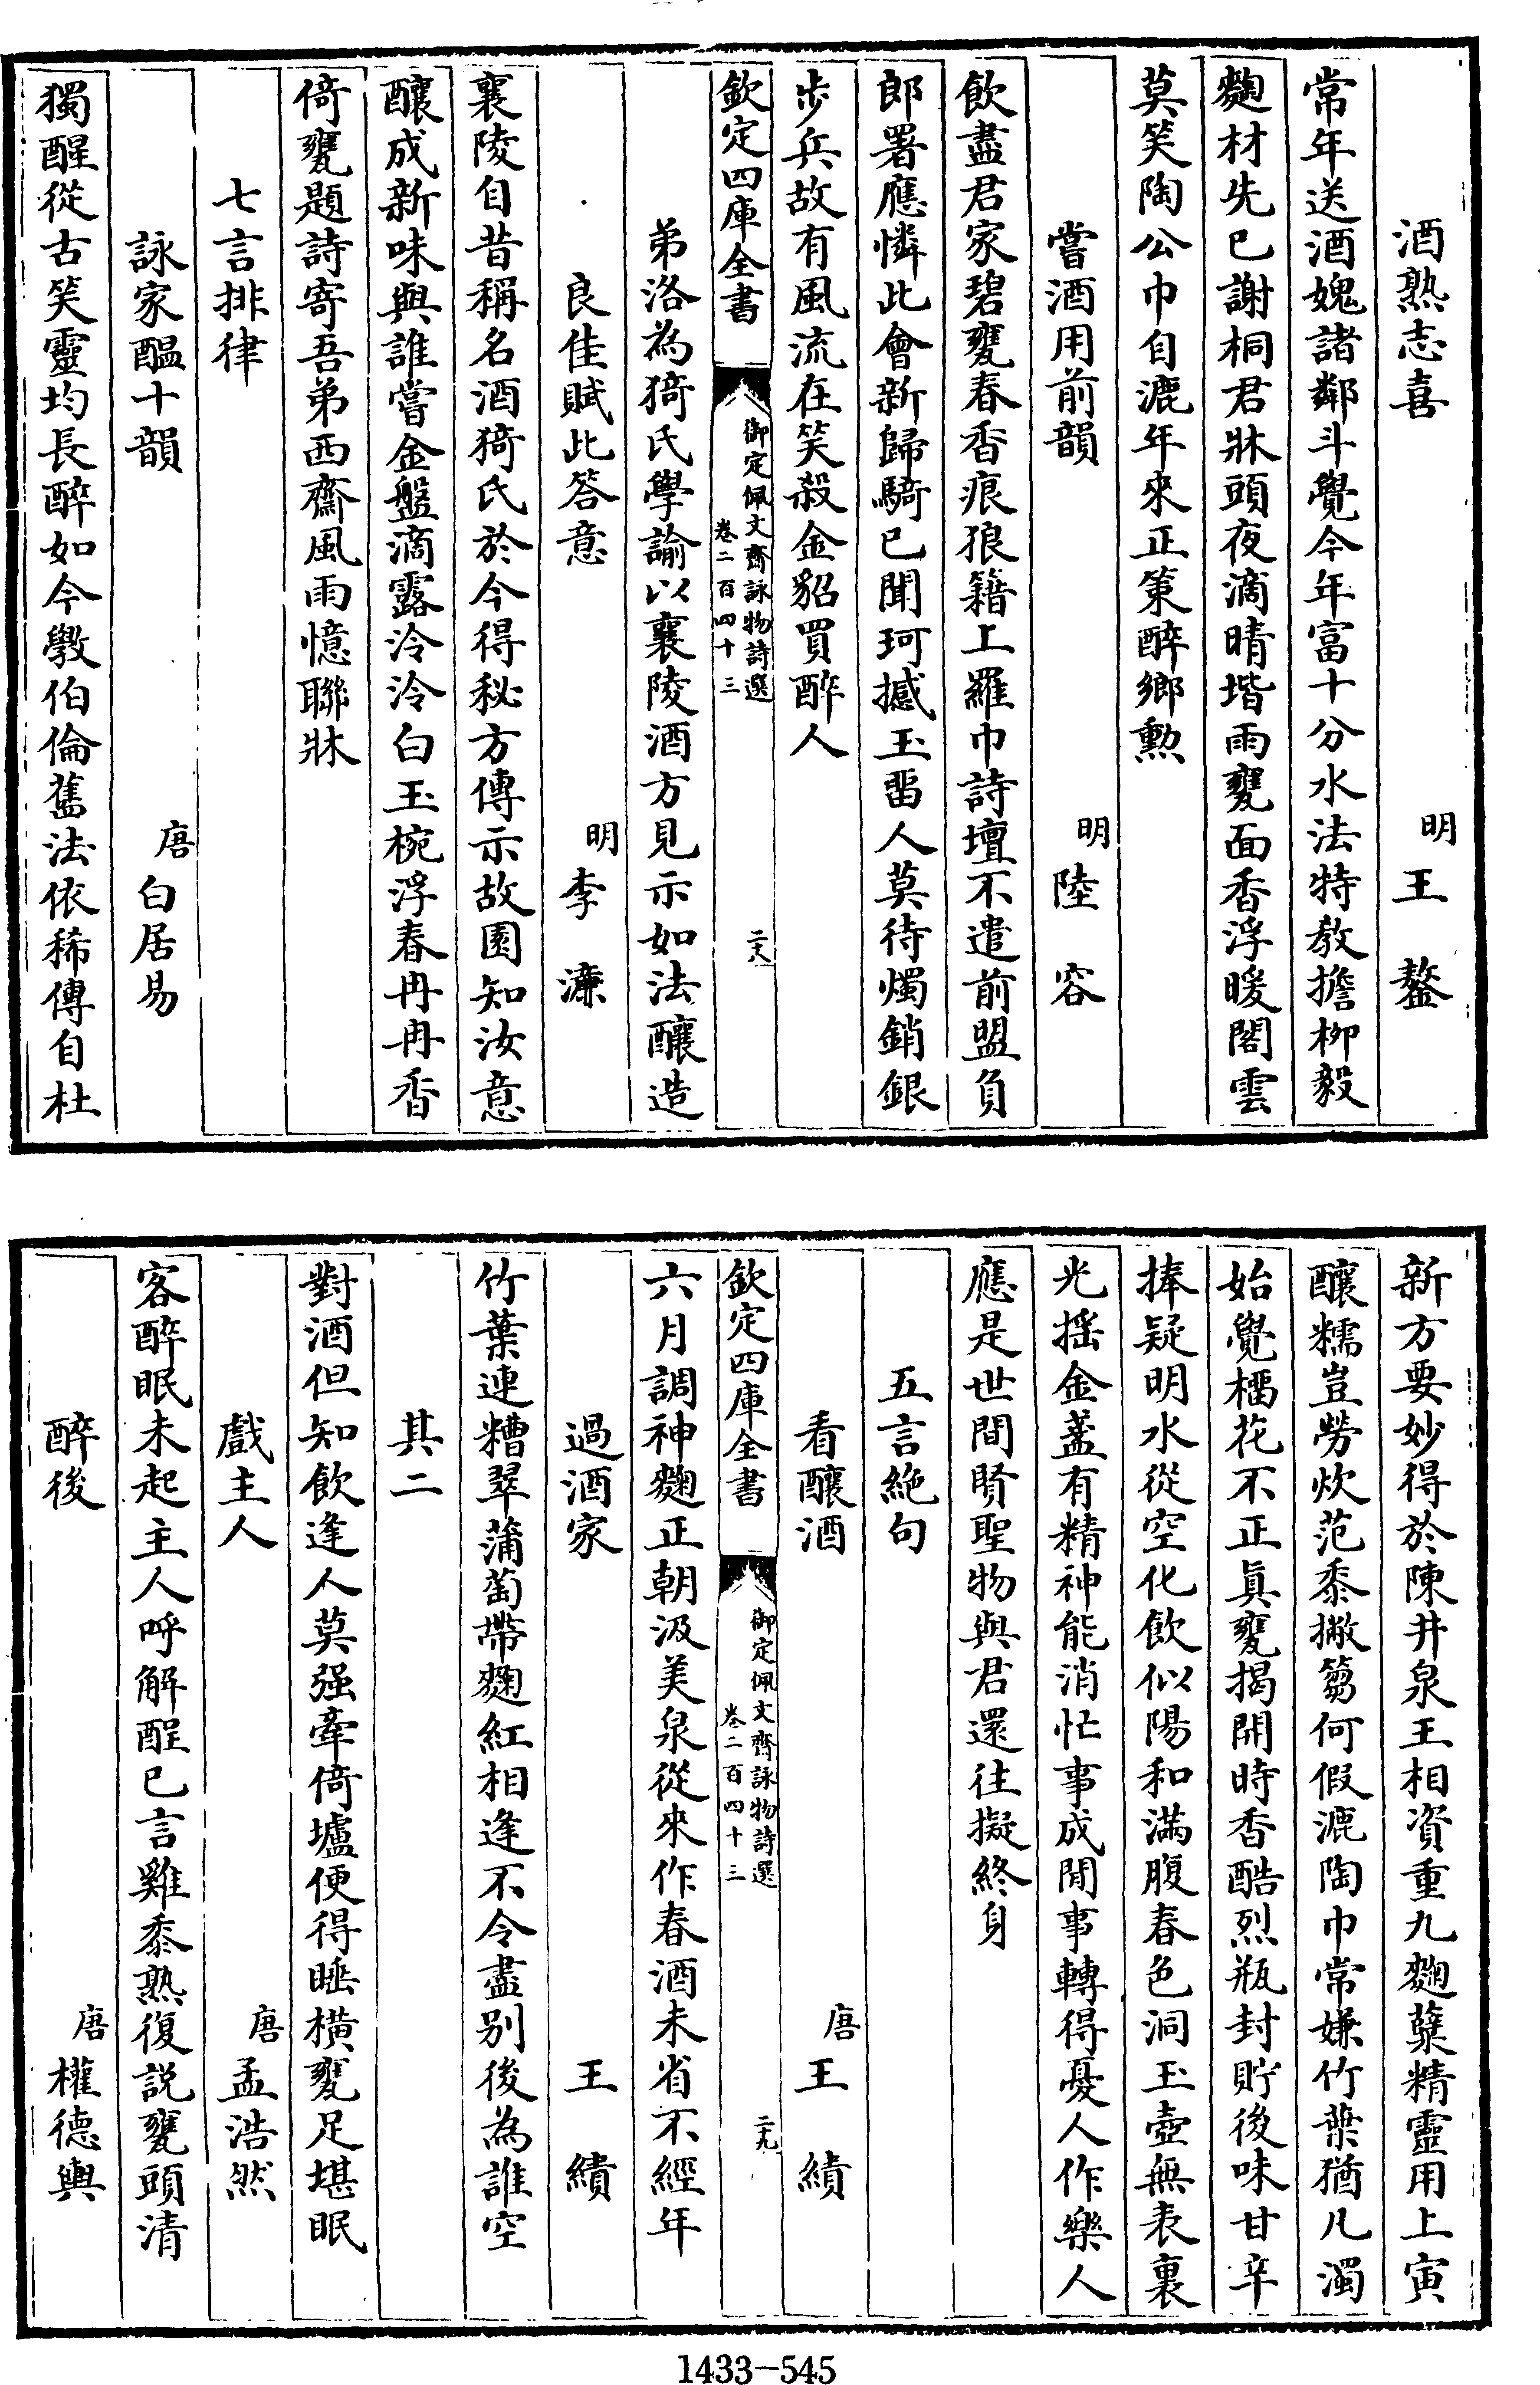 酒熟志喜 明 王鏊
常年送酒媿諸鄰斗覺今年富十分水法特教擔柳毅
麴材先已謝桐君牀頭夜滴晴堦雨甕面香浮暖閣雲
莫笑陶公巾自漉年來正策醉鄉勲
嘗酒用前韻 明 陸容
飲盡君家碧甕春香痕狼籍上羅巾詩壇不遣前盟負
郎署應憐此會新歸騎已聞珂撼玉畱人莫待燭銷銀
步兵故有風流在笑殺金貂買醉人
欽定四庫全書 御定佩文齋詠物詩選 卷二百四十三 二十八
弟洛為猗氏學諭以襄陵酒方見示如法釀造
良佳賦此答意 明 李濂
襄陵自昔稱名酒猗氏於今得秘方傳示故園知汝意
釀成新味與誰嘗金盤滴露泠泠白玉椀浮春冉冉香
倚甕題詩寄吾弟西齋風雨憶聯牀
七言排律
詠家醖十韻 唐 白居易
獨醒從古笑靈均長醉如今斆伯倫舊法依稀傳自杜
新方要妙得於陳井泉王相資重九麴糵精靈用上寅
釀糯豈勞炊范黍撇篘何假漉陶巾常嫌竹葉猶凡濁
始覺榴花不正真甕揭開時香酷烈瓶封貯後味甘辛
捧疑明水從空化飲似陽和滿腹春色洞玉壺無表裏
光摇金盞有精神能消忙事成閒事轉得憂人作樂人
應是世間賢聖物與君還往擬終身
五言絶句
看釀酒 唐 王績
六月調神麴正朝汲美泉從來作春酒未省不經年
欽定四庫全書 御定佩文齋詠物詩選 卷二百四十三 二十九
過酒家 王績
竹葉連糟翠蒲萄帶麴紅相逢不令盡别後為誰空
其二
對酒但知飲逢人莫强牽倚壚便得睡橫甕足堪眠
戲主人 唐 孟浩然
客醉眠未起主人呼解酲已言雞黍熟復説甕頭清
醉後 唐 權德輿
1433-545